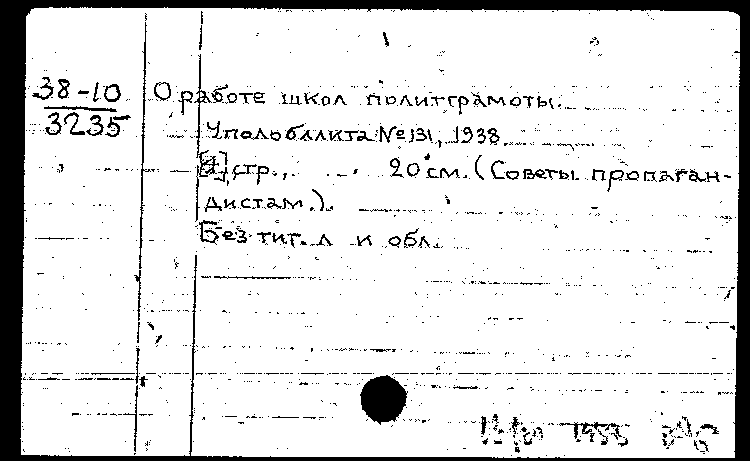 38-10
3235
О работе школ политграмоты.
Уполобллита № 131, 1938.
стр., 20 см. (Советы пропаган-
дистам.).
Без тит. л и обл.